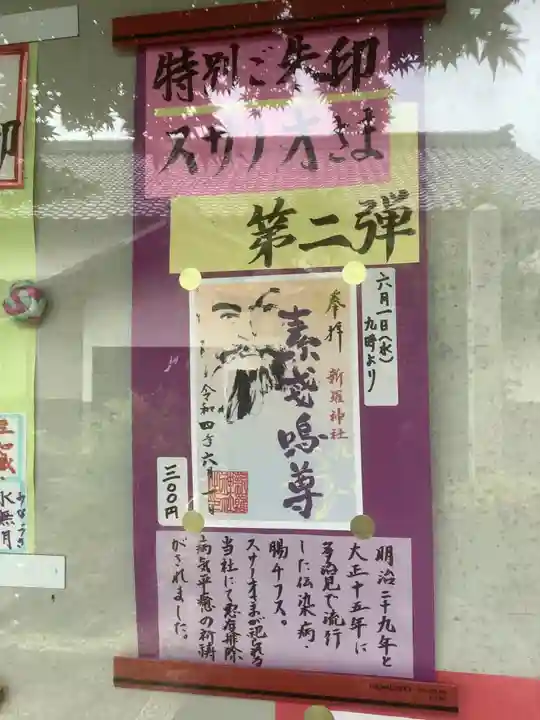 特別ご朱印
スサノオさま
第二弾
六月一日(水)
九時より
奉拝
新羅神社
素戔嗚尊
令和四年六月一日
三〇〇円
明治二十九年と
大正十五年に
多治見で流行
した伝染病・
腸チフス。
スサノオさまが祀られる
当社にて悪疫排除
病気平癒の祈祷
がされました。
水無月
みなづき
印